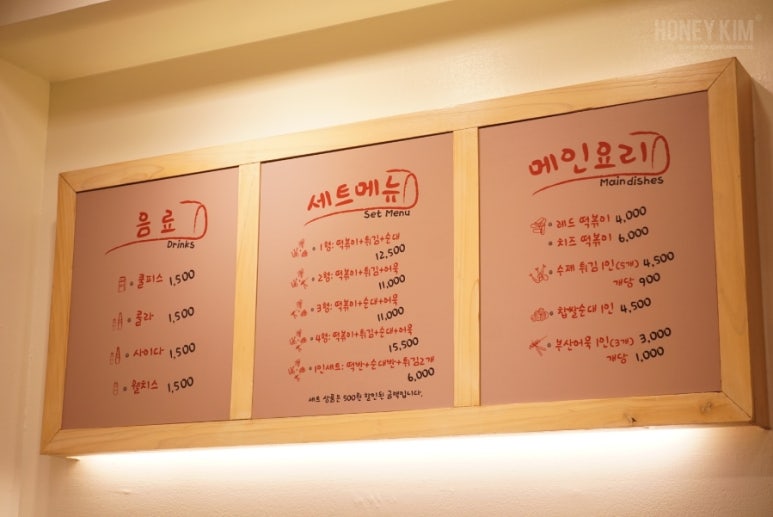 HONEY KIM
음료
Drinks
쿨피스 1,500
콜라 1,500
사이다 1,500
웰치스 1,500
세트메뉴
Set Menu
1형: 떡볶이+튀김+순대
12,500
2형: 떡볶이+튀김+어묵
11,000
3형: 떡볶이+순대+어묵
11,000
4형: 떡볶이+튀김+순대+어묵
15,500
1인세트: 떡반+순대반+튀김2개
6,000
세트 상품은 500원 할인된 금액입니다.
메인요리
Maindishes
레드 떡볶이 4,000
치즈 떡볶이 6,000
수제 튀김 1인(5개) 4,500
개당 900
찹쌀순대 1인 4,500
부산어묵 1인(3개) 3,000
개당 1,000